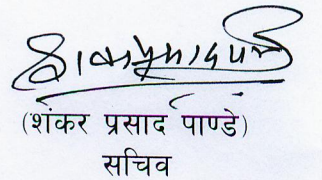 (शंकर प्रसाद पाण्डे)
सचिव